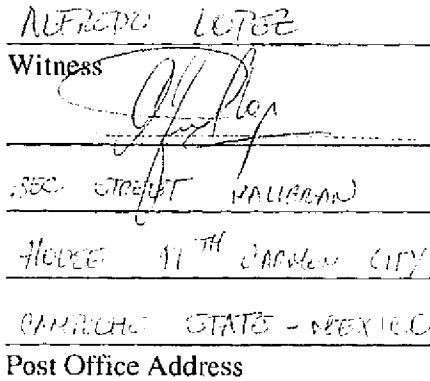 ALFREDO LOPEZ
Witness
STREET
17TH CARMEN CITY
CAMPECHE STATE - MEXICO
Post Office Address